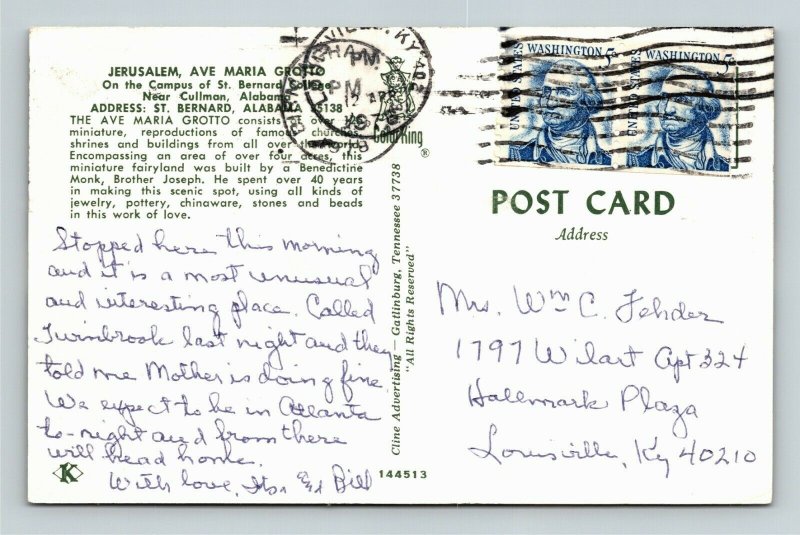 JERUSALEM, AVE MARIA GROTTO
On the Campus of St. Bernard College
Near Cullman, Alabama
ADDRESS: ST. BERNARD, ALABAMA 35138
THE AVE MARIA GROTTO consists of over
miniature, reproductions of famous churches,
shrines and buildings from all over the world.
Encompassing an area of over four acres, this
miniature fairyland was built by a Benedictine
Monk, Brother Joseph. He spent over 40 years
in making this scenic spot, using all kinds of
jewelry, pottery, chinaware, stones and beads
in this work of love.
Stopped here this morning
and it is a most unusual
and interesting place. Called
Twinbrook last night and they
told me Mother is doing fine
We expect to be in Atlanta
to-night and from there
will head home.
With love, Bill
K
PM
ColorKing ®
Cline Advertising — Gatlinburg, Tennessee 37738
"All Rights Reserved"
144513
UNITED STATES WASHINGTON 5c
UNITED STATES WASHINGTON 5c
POST CARD
Address
Mrs. Wm C. Fehder
1797 Wilart Apt 324
Hallmark Plaza
Louisville, Ky 40210